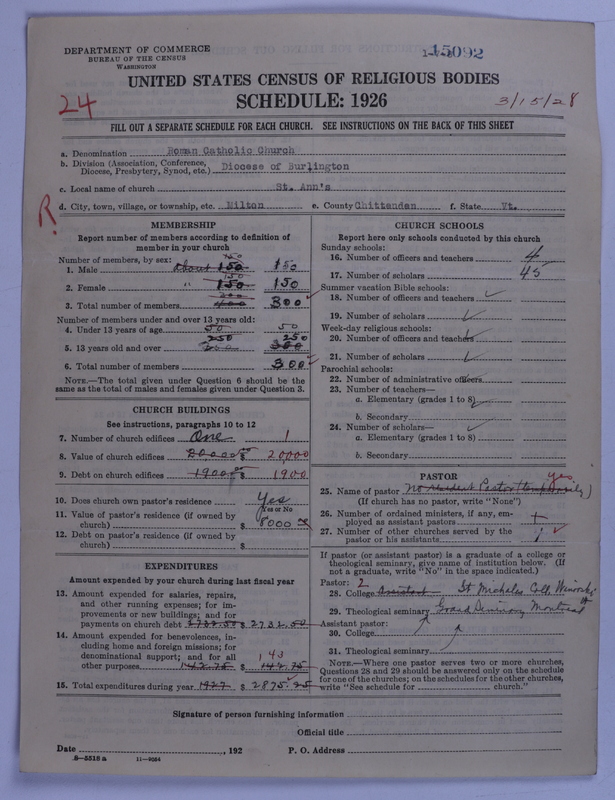 DEPARTMENT OF COMMERCE
BUREAU OF THE CENSUS
WASHINGTON
15092
UNITED STATES CENSUS OF RELIGIOUS BODIES
24
SCHEDULE: 1926
3/15/28
FILL OUT A SEPARATE SCHEDULE FOR EACH CHURCH. SEE INSTRUCTIONS ON THE BACK OF THIS SHEET
a. Denomination Roman Catholic Church
b. Division (Association, Conference, Diocese, Presbytery, Synod, etc.) Diocese of Burlington
c. Local name of church St. Ann's
R.
d. City, town, village, or township, etc. Milton e. County Chittenden f. State Vt.
MEMBERSHIP
Report number of members according to definition of
member in your church
Number of members, by sex:
150
1. Male about 150 150
150
2. Female " 150 150
300
3. Total number of members 400 300
Number of members under and over 13 years old:
4. Under 13 years of age 50 50
250 250
5. 13 years old and over 300 300
6. Total number of members 300
NOTE.—The total given under Question 6 should be the
same as the total of males and females given under Question 3.
CHURCH BUILDINGS
See instructions, paragraphs 10 to 12
7. Number of church edifices One 1
8. Value of church edifices 20000 $ 20,000
9. Debt on church edifices 1900.00 $ 1900
10. Does church own pastor's residence Yes
Yes or No
11. Value of pastor's residence (if owned by
church) $ 8000
12. Debt on pastor's residence (if owned by
church) $
EXPENDITURES
Amount expended by your church during last fiscal year
13. Amount expended for salaries, repairs,
and other running expenses; for im-
provements or new buildings; and for
payments on church debt 2732.50 $ 2732.50
14. Amount expended for benevolences, in-
cluding home and foreign missions; for
denominational support; and for all
143
other purposes 142.75 $ 142.75
15. Total expenditures during year 1927 $ 2875.25
CHURCH SCHOOLS
Report here only schools conducted by this church
Sunday schools:
16. Number of officers and teachers 4
17. Number of scholars 45
Summer vacation Bible schools:
18. Number of officers and teachers
19. Number of scholars
Week-day religious schools:
20. Number of officers and teachers
21. Number of scholars
Parochial schools:
22. Number of administrative officers
23. Number of teachers—
a. Elementary (grades 1 to 8)
b. Secondary
24. Number of scholars—
a. Elementary (grades 1 to 8)
b. Secondary
PASTOR
yes
25. Name of pastor No resident Pastor (temporarily)
(If church has no pastor, write "None")
26. Number of ordained ministers, if any, em-
ployed as assistant pastors
27. Number of other churches served by the
pastor or his assistants 1
If pastor (or assistant pastor) is a graduate of a college or
theological seminary, give name of institution below. (If
not a graduate, write "No" in the space indicated.)
Pastor: 2
28. College Assistant St Michaels Coll. Winooski
29. Theological seminary Grand Seminary Montreal
Assistant pastor:
30. College
31. Theological seminary
NOTE.—Where one pastor serves two or more churches,
Questions 28 and 29 should be answered only on the schedule
for one of the churches; on the schedules for the other churches,
write "See schedule for church."
Signature of person furnishing information
Official title
Date , 192 P. O. Address
8—5516 a 11—9064